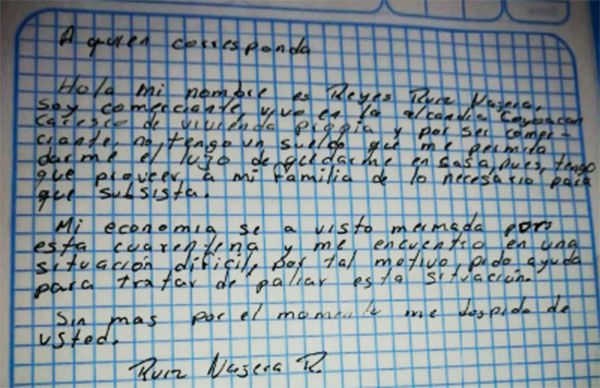 A quien corresponda
Hola mi nombre es Reyes Ruiz Nasera,
soy comerciante, vivo en la alcandia Coyoacan
Caresco de vivienda propia y por ser comer-
ciante, no, tengo un sueldo que me permita
darme el lujo de quedarme en casa, pues, tengo
que proveer, a mi familia de lo necesario para
que subsista.
Mi economia se a visto mermada por
esta cuarentena y me encuentro en una
situación dificile, por tal motivo, pido ayuda
para tratar de paliar esta situación.
Sin mas por el momento me despido de
usted.
Ruiz Nasera R.